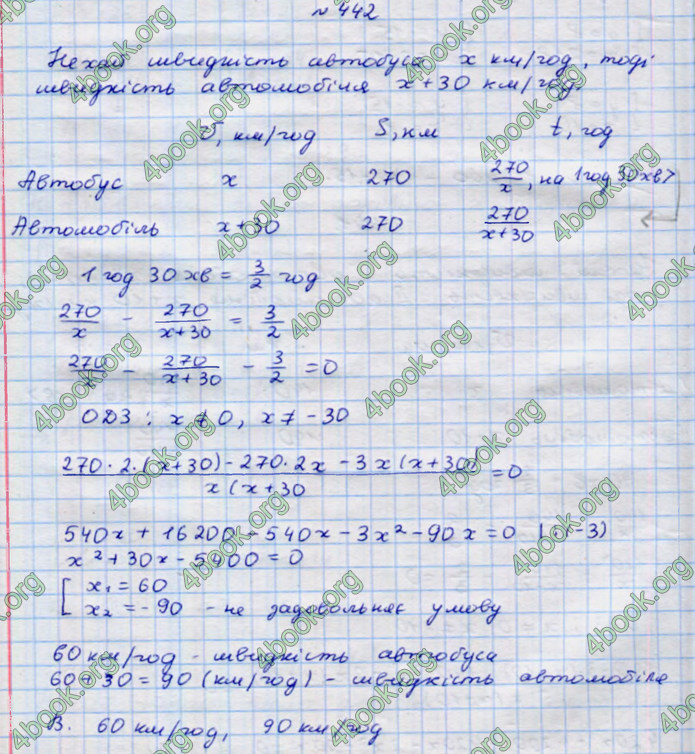 № 442
Нехай швидкість автобуса x км/год, тоді
швидкість автомобіля x+30 км/год.
V, км/год S, км t, год
Автобус x 270 270/x, на 1 год 30 хв >
Автомобіль x+30 270 270/(x+30)
1 год 30 хв = 3/2 год
270/x - 270/(x+30) = 3/2
270/x - 270/(x+30) - 3/2 = 0
ОДЗ: x ≠ 0, x ≠ -30
(270·2·(x+30) - 270·2x - 3x(x+30))/(x(x+30) = 0
540x + 16200 - 540x - 3x² - 90x = 0 | :(-3)
x² + 30x - 5400 = 0
[ x₁ = 60
x₂ = -90 - не задовольняє умову
60 км/год - швидкість автобуса
60+30 = 90 (км/год) - швидкість автомобіля
В. 60 км/год, 90 км/год
4book.org